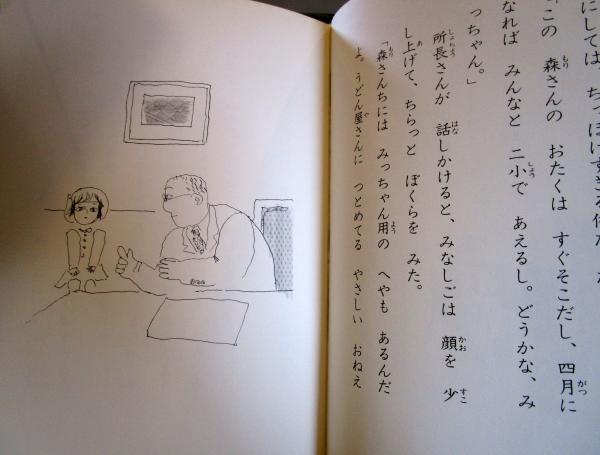 にしては、ちっぽけすぎる
「この 森さんの おたくは すぐそこだし、四月に
なれば みんなと 二小で あえるし。どうかな、み
っちゃん。」
所長さんが 話しかけると、みなしごは 顔を 少
し上げて、ちらっと ぼくらを みた。
「森さんちには みっちゃん用の へやも あるんだ
よ。うどん屋さんに つとめてる やさしい おねえ